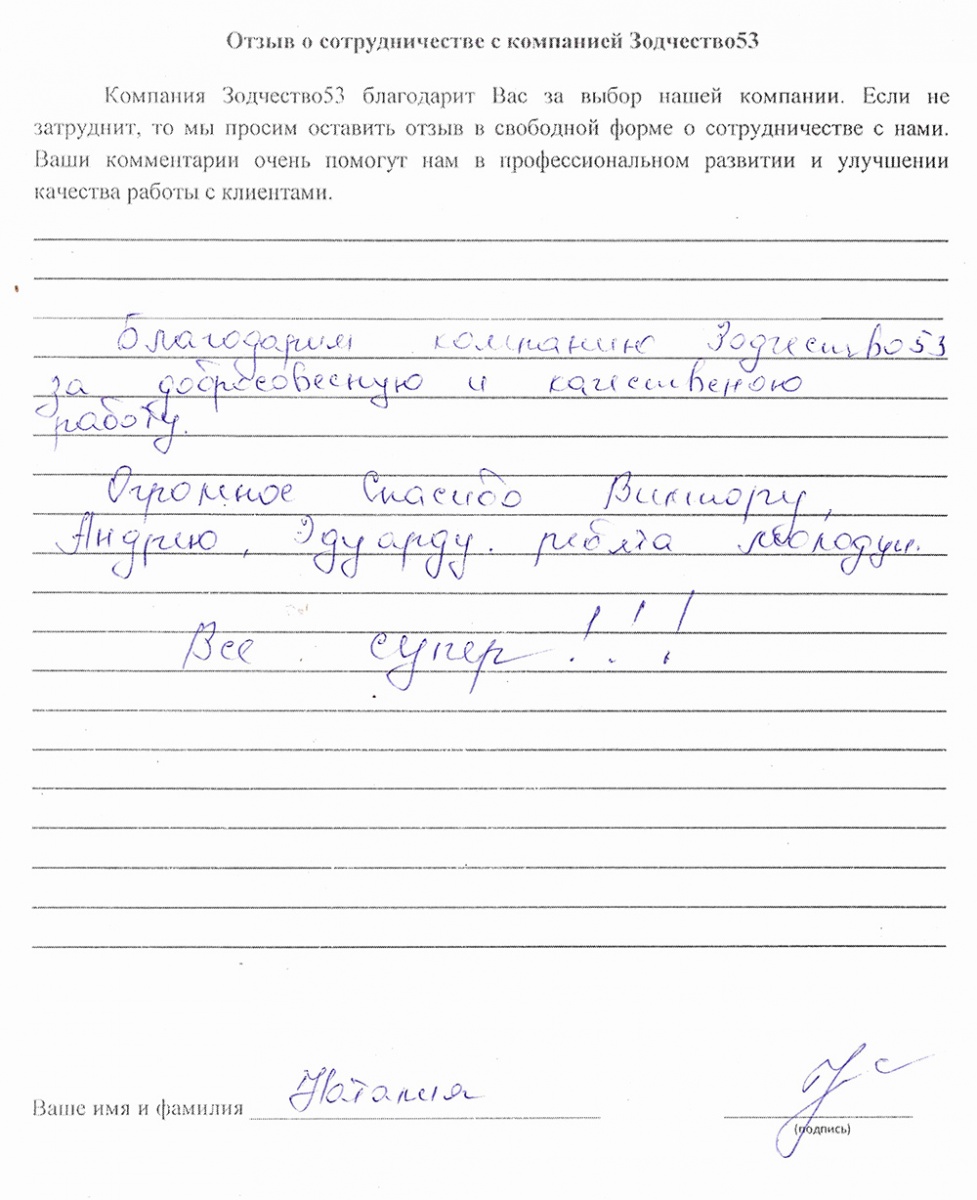 Отзыв о сотрудничестве с компанией Зодчество53
Компания Зодчество53 благодарит Вас за выбор нашей компании. Если не
затруднит, то мы просим оставить отзыв в свободной форме о сотрудничестве с нами.
Ваши комментарии очень помогут нам в профессиональном развитии и улучшении
качества работы с клиентами.
Благодарим компанию Зодчество53
за добросовесную и качественою
работу.
Огромное Спасибо Виктору,
Андрею, Эдуарду. ребята молодцы.
Все супер!!!
Ваше имя и фамилия Наталия
(подпись)